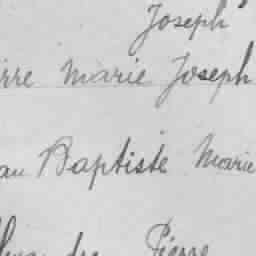 Joseph
irre Marie Joseph
an Baptiste Marie
Pierre